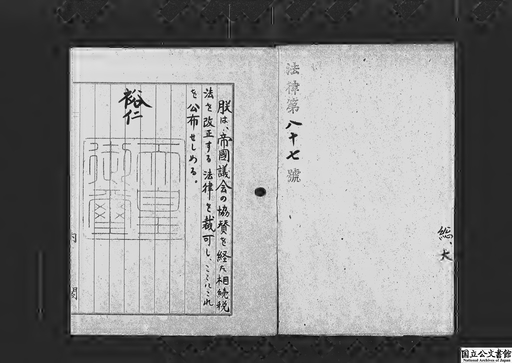 法律第八十七號
総、大
朕は、帝國議会の協賛を経た相続税
法を改正する法律を裁可し、ここにこれ
を公布せしめる。
裕仁
天皇
御璽
内閣
国立公文書館
National Archives of Japan